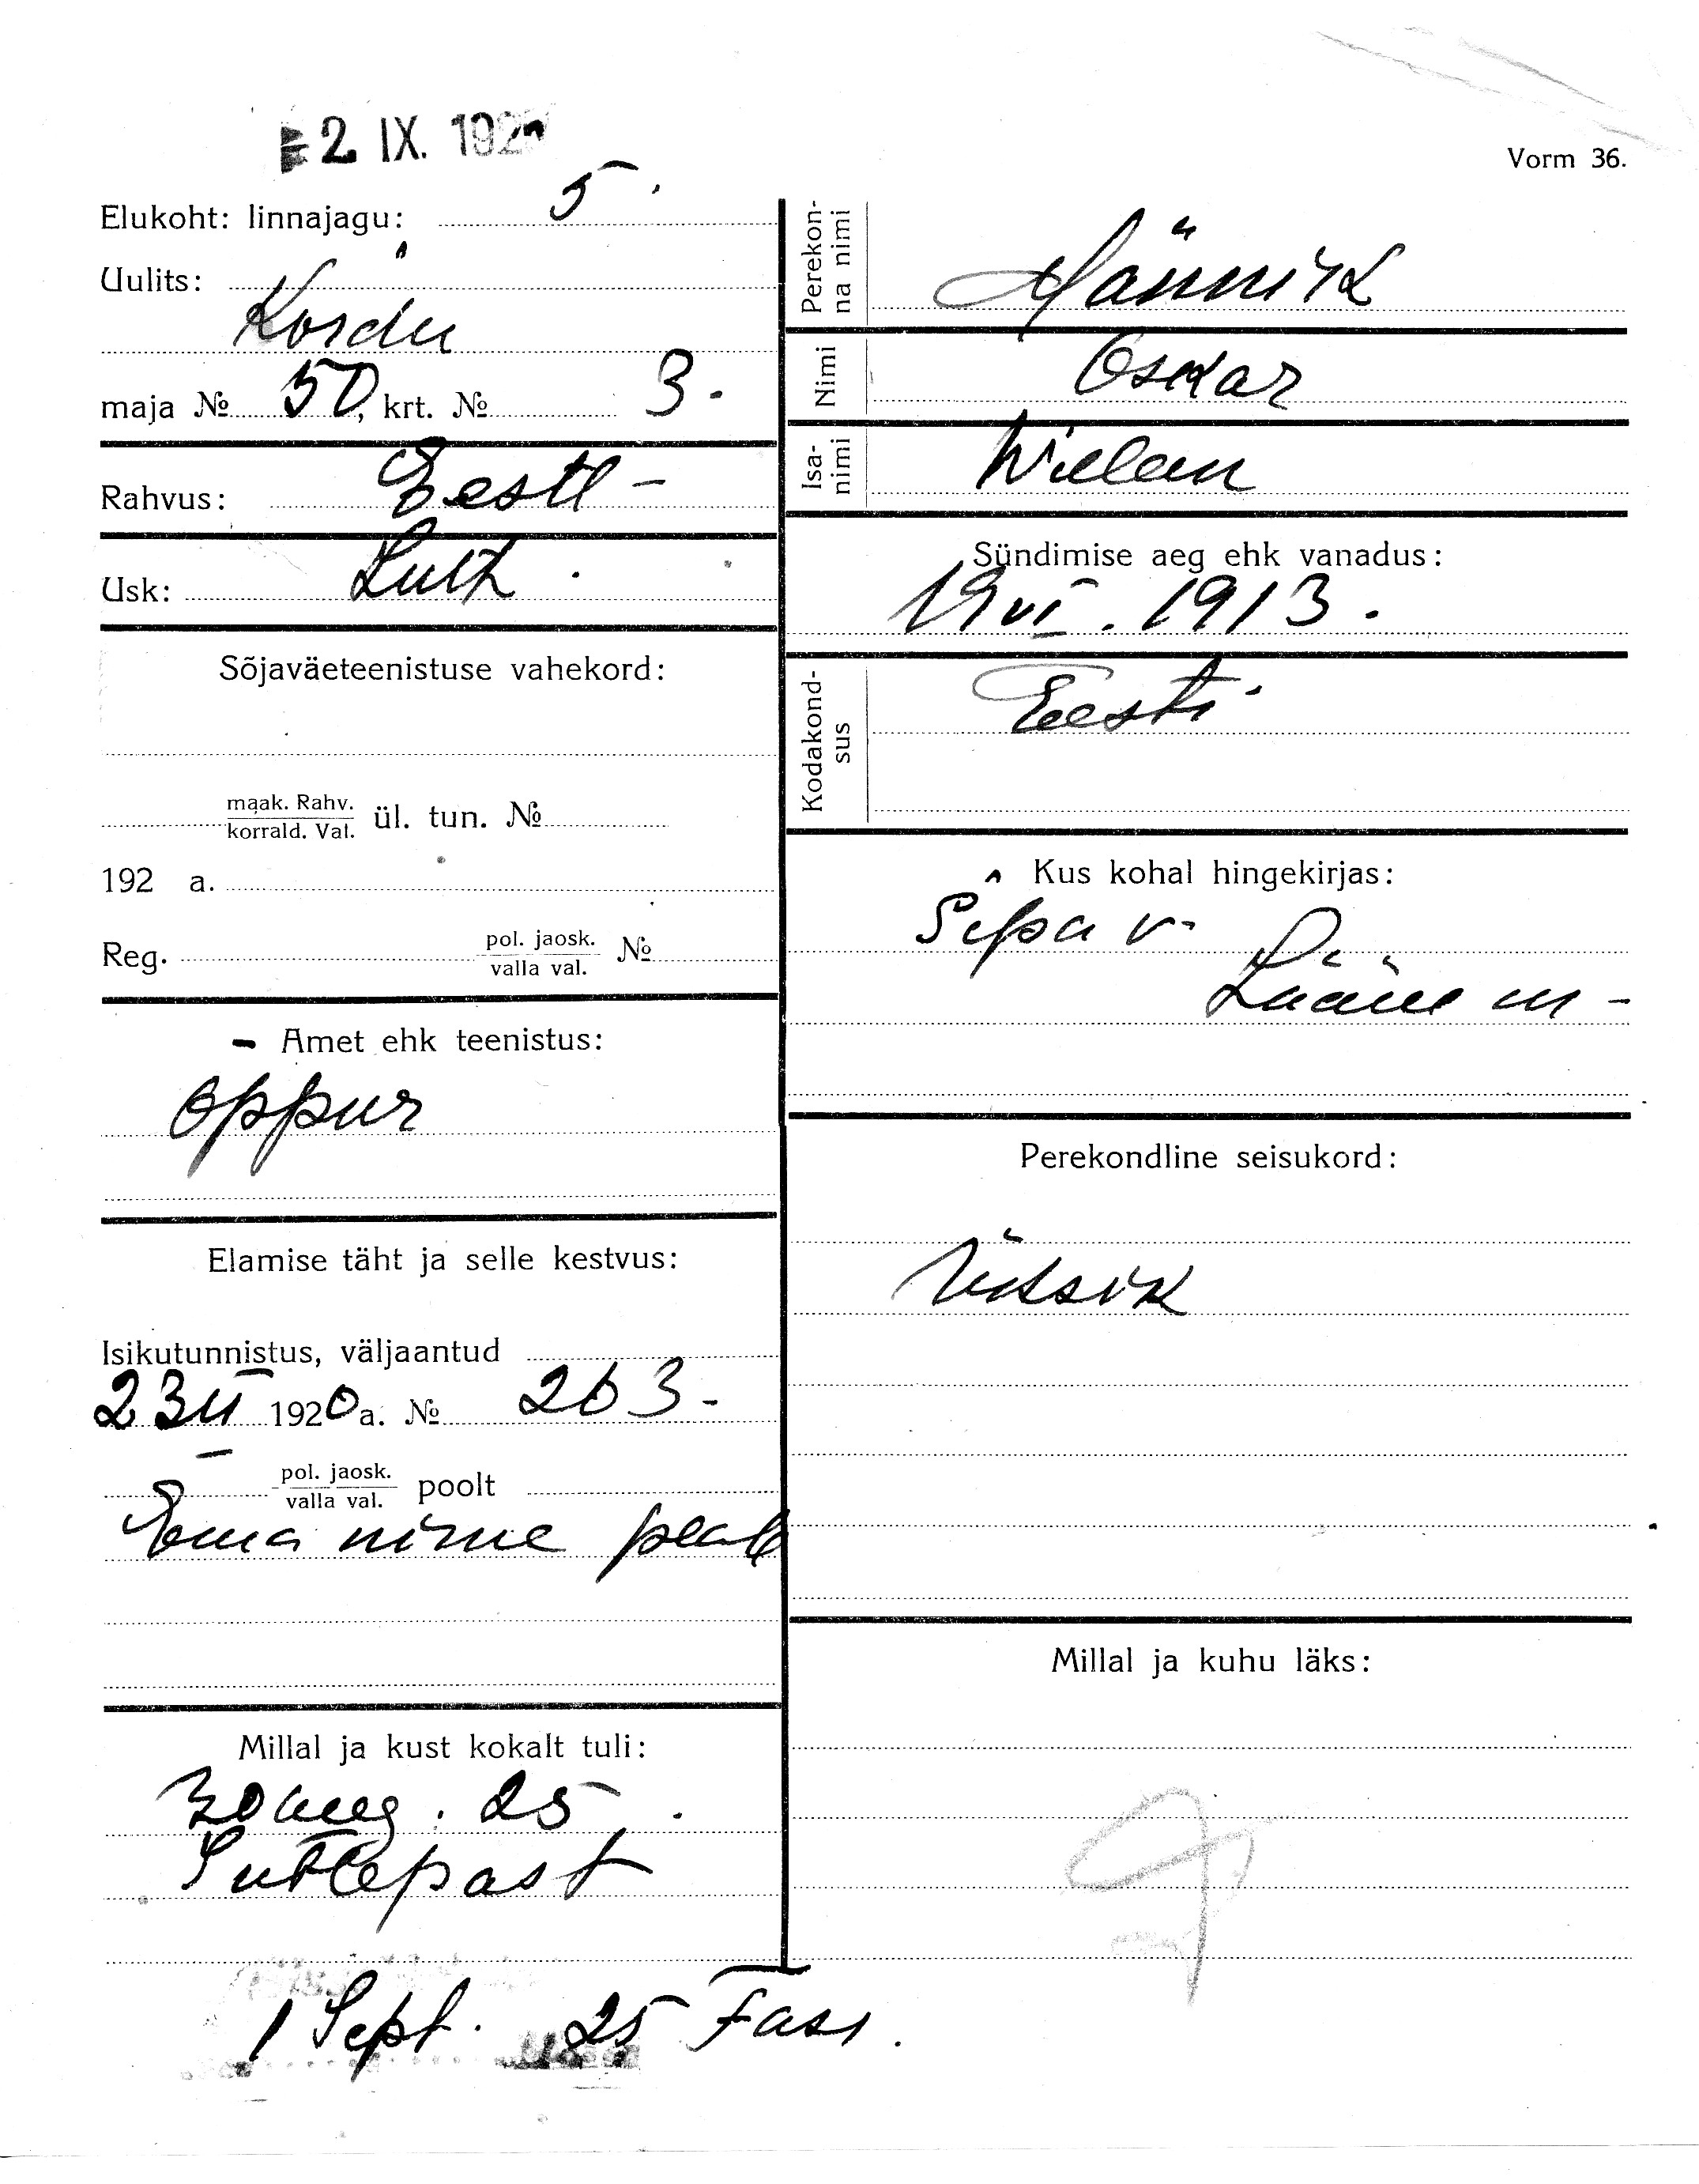 2 IX. 192
Vorm 36.
Elukoht: linnajagu: 5.
Uulits:
Kordu
maja № 50, krt. № 3.
Rahvus: Eestl -
Usk: Luth.
Sõjaväeteenistuse vahekord:
maak. Rahv.
korrald. Val. ül. tun. №
192 a.
Reg. pol. jaosk.
valla val. №
- Amet ehk teenistus:
Oppur
Elamise täht ja selle kestvus:
Isikutunnistus, väljaantud
23 II 1920 a. № 263.-
pol. jaosk.
valla val. poolt
Ema nime peal
Millal ja kust kokalt tuli:
30 Aug. 25.
Sutlepast
1 Sept. 25
Perekon-
na nimi Männik
Nimi Oskar
Isa-
nimi Willem
Sündimise aeg ehk vanadus:
19 VI. 1913.
Kodakond-
sus Eesti
Kus kohal hingekirjas:
v.
Lääne m -
Perekondline seisukord:
Üksik
Millal ja kuhu läks: